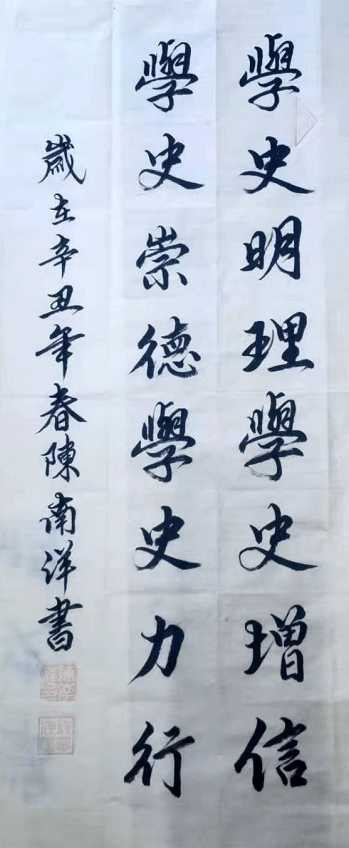 學史明理學史增信
學史崇德學史力行
歲在辛丑年春陳南洋書